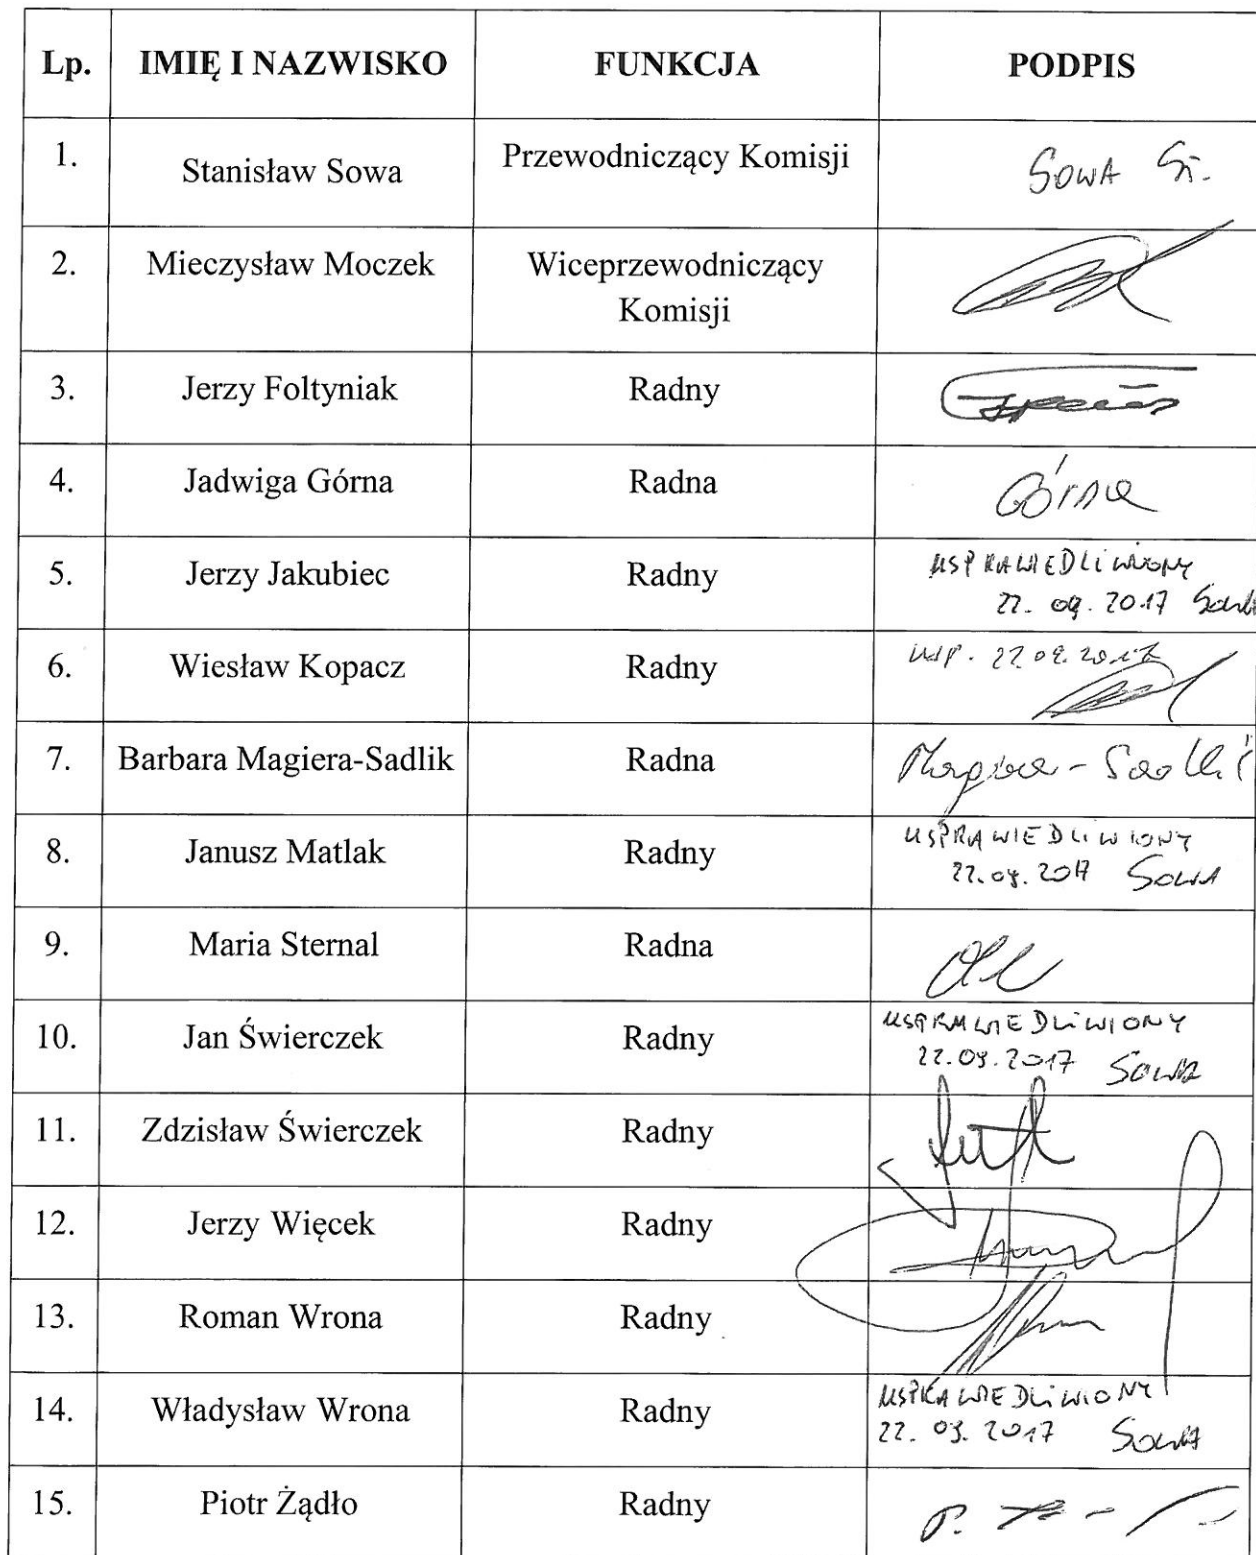 Lp. IMIĘ I NAZWISKO FUNKCJA PODPIS
1. Stanisław Sowa Przewodniczący Komisji SOWA St.
2. Mieczysław Moczek Wiceprzewodniczący
Komisji
3. Jerzy Foltyniak Radny
4. Jadwiga Górna Radna Górna
5. Jerzy Jakubiec Radny USPRAWIEDLIWIONY
22.09.2017 Sowa
6. Wiesław Kopacz Radny usp. 22.09.2017
7. Barbara Magiera-Sadlik Radna Magiera-Sadlik
8. Janusz Matlak Radny USPRAWIEDLIWIONY
22.09.2017 SOWA
9. Maria Sternal Radna
10. Jan Świerczek Radny USPRAWIEDLIWIONY
22.09.2017 SOWA
11. Zdzisław Świerczek Radny
12. Jerzy Więcek Radny
13. Roman Wrona Radny
14. Władysław Wrona Radny USPRAWIEDLIWIONY
22.09.2017 SOWA
15. Piotr Żądło Radny